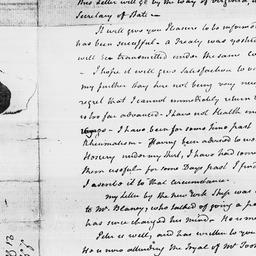 this letter will go by the way of Virginia,
Secretary of State
It will give you Pleasure to be informed
has been successful - a Treaty was yesterday
will be transmitted under the same Co
I hope it will give Satisfaction to
my further stay here not being very nece
regret that I cannot immediately return
is too far advanced - I have not Health en
- I have been for some time past
Rheumatism - Having been advised to wear
Hosiery under my Shirt, I have had some
been useful - for some Days past I find
I ascribe it to that circumstance.
my letter by the new York Ship was
to Mr. Blaney, who talked of going a pa
has since changed his mind.
Peter is well, and has written to you
He is now attending the Tryal of Mr.